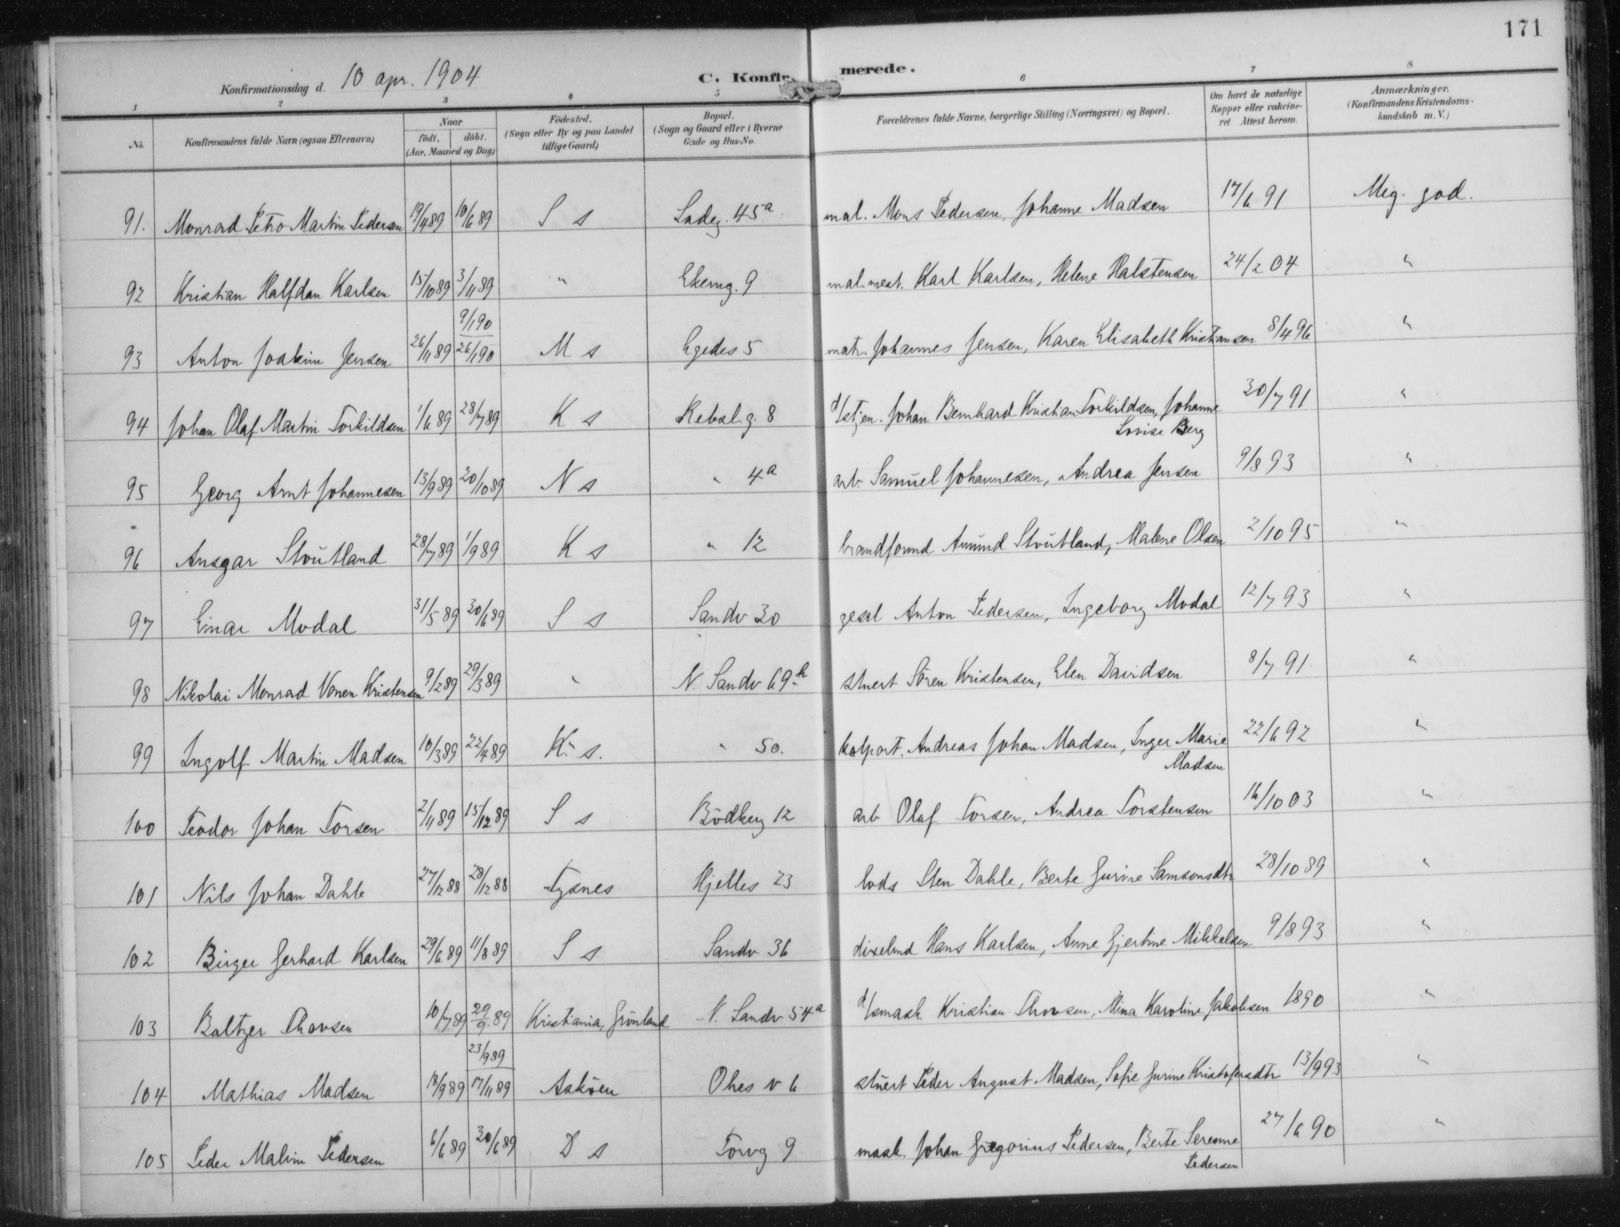 171
Konfirmationsdag d. 10 apr. 1904
C. Konfirmerede.
1 2 3 4 5 6 7 8
No. Konfirmandens fulde Navn (ogsaa Efternavn) Naar født. døbt. (Aar, Maaned og Dag) Fødested. (Sogn eller By og paa Landet tillige Gaard) Bopæl. (Sogn og Gaard eller i Byerne Gade og Hus-No. Forældrenes fulde Navne, borgerlige Stilling (Næringsvei) og Bopæl. Om havt de naturlige Kopper eller vakcineret Attest herom. Anmærkninger. (Konfirmandens Kristendomskundskab m. V.)
91. Monrad Petro Martin Pedersen 19/4 89 10/6 89 S s Ladeg. 45a mal. Mons Pedersen, Johanne Madsen 17/6 91 Meg. god.
92 Kristian Halfdan Karlsen 15/10 89 3/11 89 " Ekerng. 9 mal. mest. Karl Karlsen, Helene Halstensen 24/2 04 "
93 Anton Joakim Jensen 26/11 89 9/1 90 26/1 90 M s Egedes 5 matr. Johannes Jensen, Karen Elisabeth Kristiansen 8/4 96 "
94 Johan Olaf Martin Torkildsen 1/6 89 28/7 89 K s Rebsl. g. 8 d/s tjen. Johan Bernhard Kristian Torkildsen, Johanne Lovise Berg 30/7 91 "
95 Georg Arnt Johannesen 13/9 89 20/10 89 N s " 4a arb. Samuel Johannesen, Andrea Jensen 9/8 93 "
96 Ansgar Stoutland 28/7 89 1/9 89 K s " 12 brandformd Amund Stoutland, Malene Olsen 2/10 95 "
97 Einar Modal 31/5 89 30/6 89 S s Sandv 30 gesel Anton Pedersen, Ingeborg Modal 12/7 93 "
98 Nikolai Monrad Vonen Kristensen 9/2 89 29/3 89 " N. Sandv 69 stuert Sören Kristensen, Elen Davidsen 8/7 91 "
99 Ingolf Martin Madsen 10/3 89 22/4 89 K. s. " 50. kolport. Andreas Johan Madsen, Inger Marie Madsen 22/6 92 "
100 Teodor Johan Torsen 2/11 89 15/12 89 S s Bödkerg 12 arb Olaf Torsen, Andrea Torstensen 16/10 03 "
101 Nils Johan Dahle 27/12 88 28/12 88 Tysnes Hjelles 23 lods Sten Dahle, Berte Gurine Samsonsdtr 28/10 89 "
102 Birger Gerhard Karlsen 29/6 89 11/8 89 S s Sandv 36 dixelmd Hans Karlsen, Anne Gjertine Mikkelsen 9/8 93 "
103 Baltzer Thovsen 10/7 89 29/9 89 Kristiania, Grönland N. Sandv 54a d/s mask Kristian Thovsen, Mina Karoline Jakobsen 1890 "
104 Mathias Madsen 18/9 89 23/9 89 17/11 89 Asköen Ohes v 6 stuert Peder August Madsen, Sofie Gurine Kristofersdtr 13/9 93 "
105 Peder Malvin Pedersen 6/6 89 30/6 89 D s Torvg 9 mask. Johan Gregorius Pedersen, Berte Serenne Pedersen 27/6 90 "